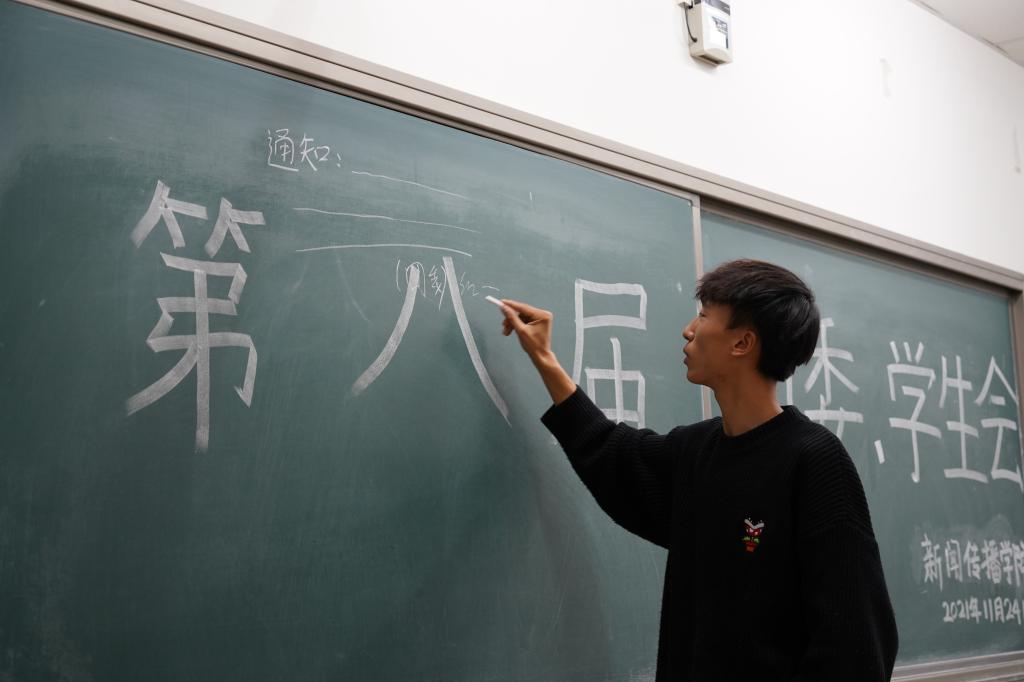 通知:
第八届 委、学生会
新闻传播学院
2021年11月24